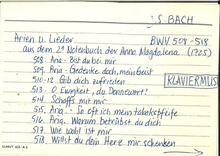 J.S. BACH
Arien u. Lieder BWV 508-518
aus dem 2º Notenbuch der Anna Magdalena (1725)
508. Aria - Bist du bei mir
509. Aria - Gedenke doch, mein Geist
510-12 Gib dich zufrieden
KLAVIERMUS
513. O Ewigkeit, du Donnerwort!
514. Schaffs mit mir
515. Aria - So oft ich mein tabakspfeife
516. Aria. Warum betrübst du dich
517. Wie wohl ist mir
518. Willst du dein Herz mir schenken